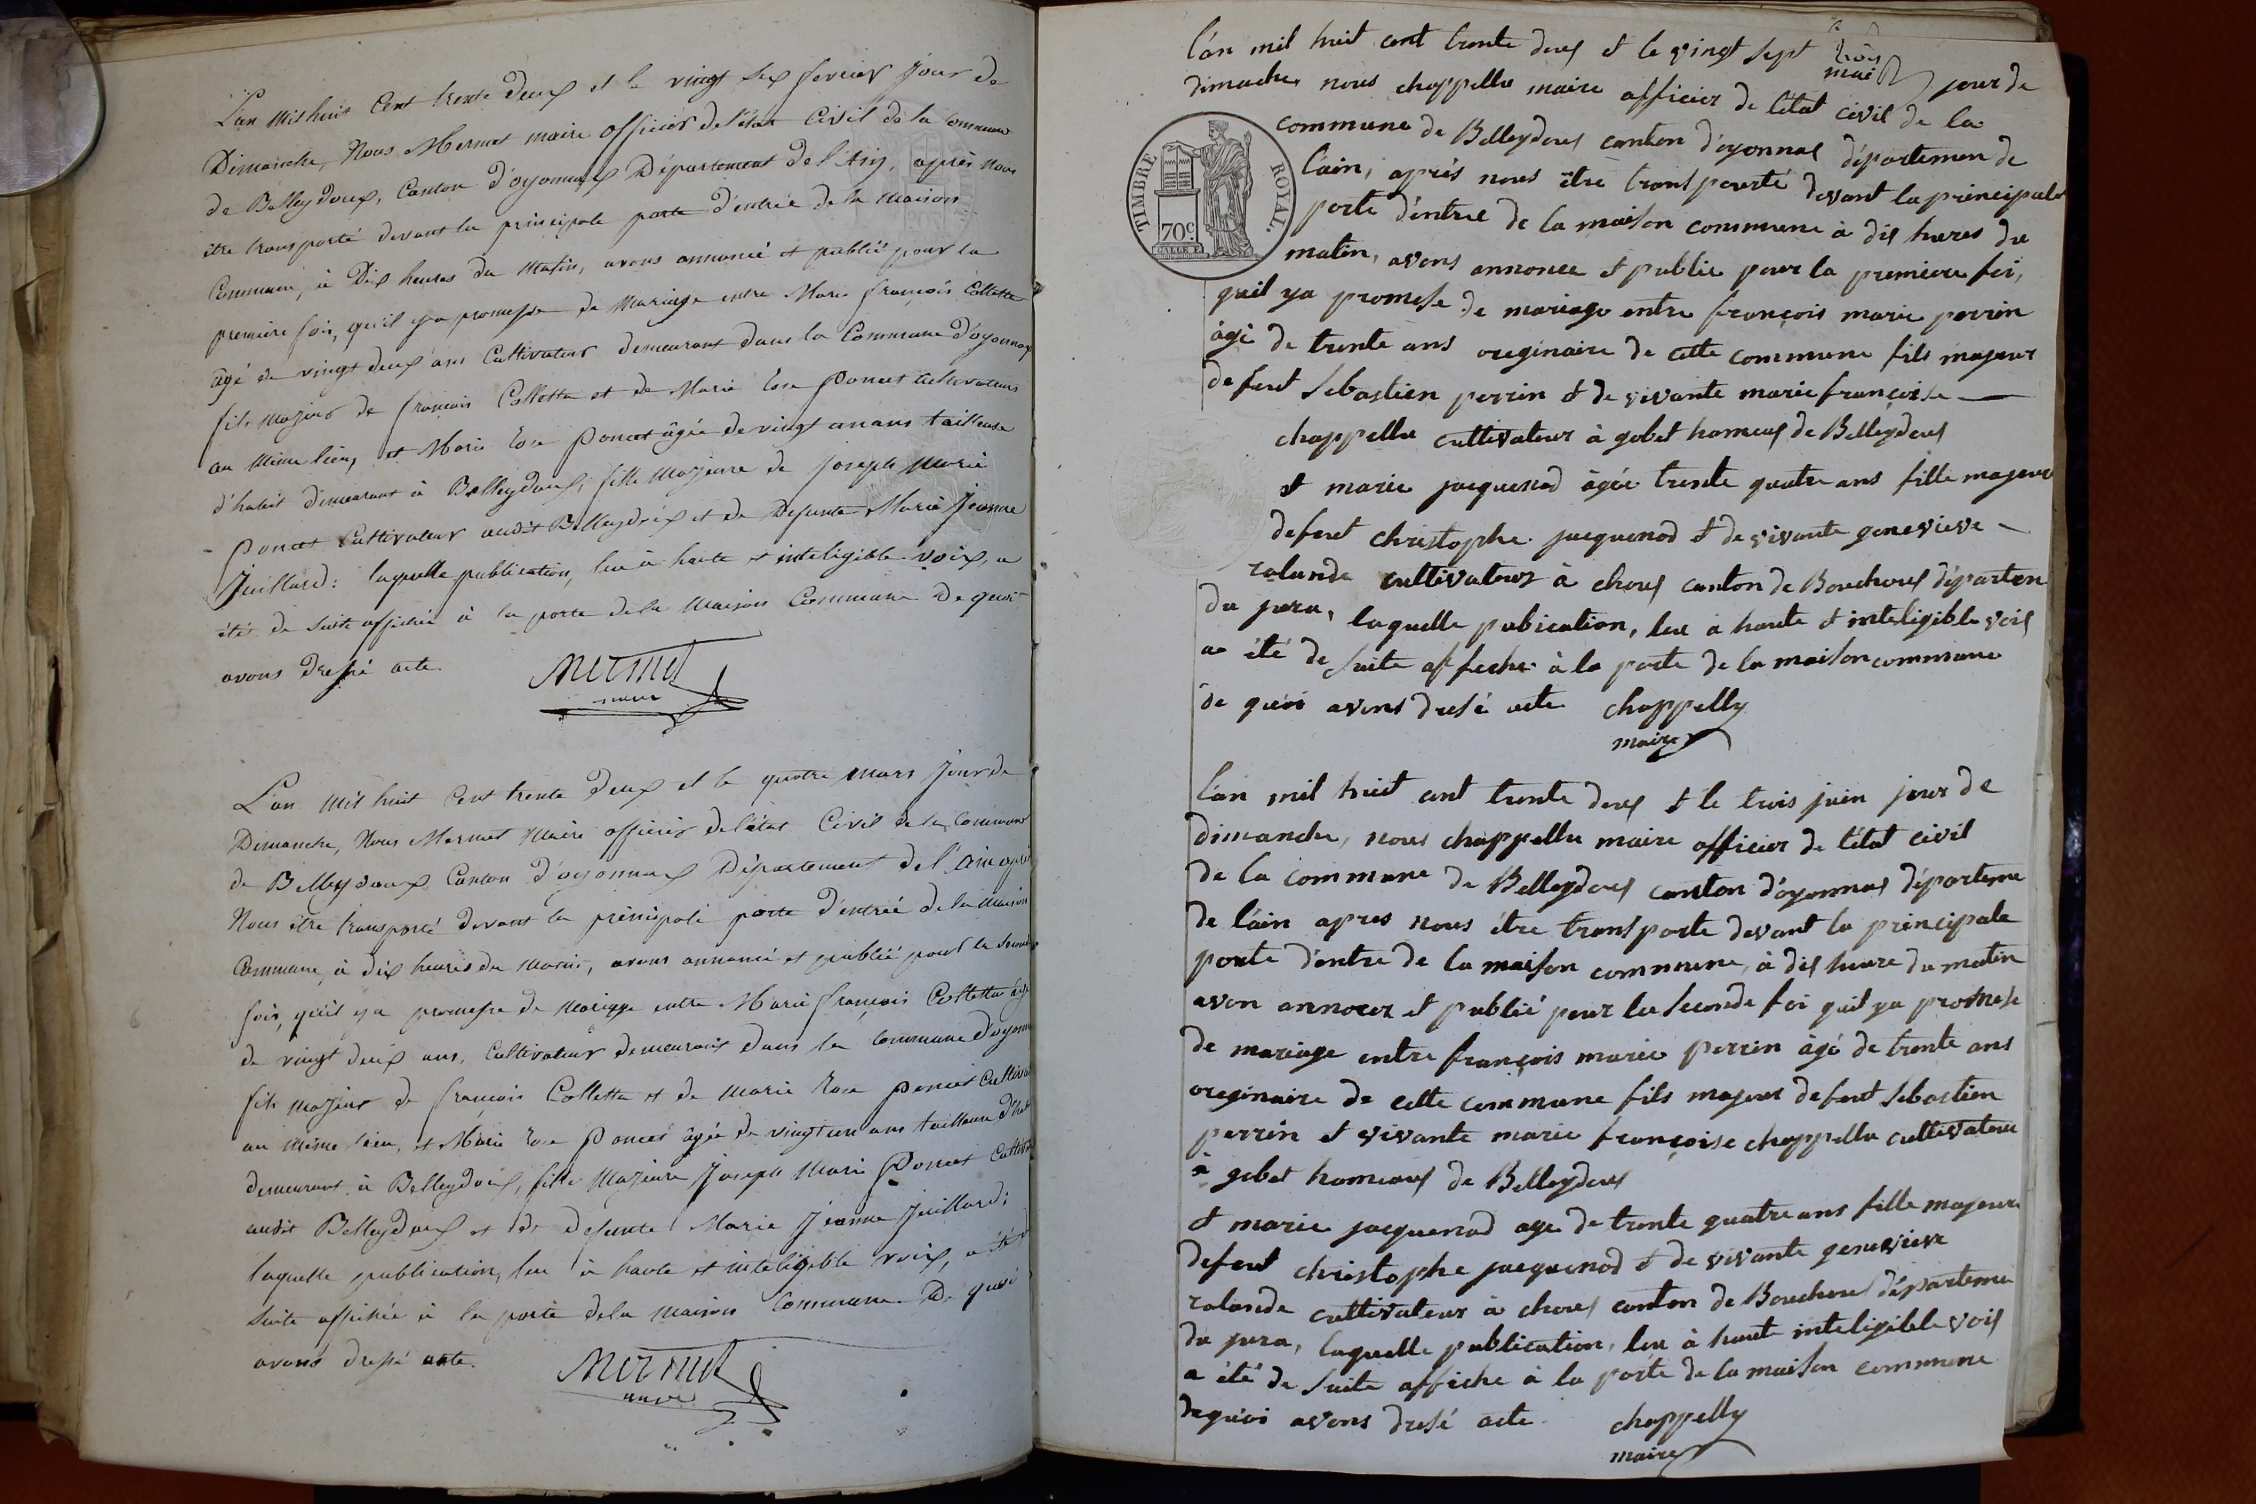 L'an mil huit Cent trente deux et le vingt six fevrier Jour de
Dimanche, Nous Mermet maire officier de l'état Civil de la Commune
de Belleydoux, Canton d'oyonnax Département de l'Ain, après nous
être transporté devant la principale porte d'entrée de la maison
Commune, à Dix heures du Matin, avons annoncé et publié pour la
première fois, qu'il y a promesse de Mariage entre Marie françois Collette
âgé de vingt deux ans Cultivateur demeurant dans la Commune d'oyonnax
fils majeur de françois Colletta et de Marie Rose Poncet Cultivateurs
au même lieu, et Marie Rose Poncet âgée de vingt un ans tailleuse
d'habit demeurant à Belleydoux, fille majeure de joseph Marie
Poncet Cultivateur audit Belleydoux et de Defunte Marie Jeanne
Juillard: laquelle publication, lue à haute et inteligible voix, a
étés de suite affichée à la porte de la Maison Commune De quoi
avons dressé acte.
Mermet
maire
L'an mil huit Cent trente deux et le quatre mars Jour de
Dimanche, Nous Mermet maire officier de l'état Civil de la Commune
de Belleydoux Canton d'oyonnax Département de l'Ain après
Nous être transporté devant la principale porte d'entrée de la Maison
Commune, à dix heures du matin, avons annoncé et publié pour la seconde
fois, qu'il y a promesse de mariage entre Marie françois Colletta âgé
de vingt deux ans, Cultivateur demeurant dans la Commune d'oyonn
fils majeur de françois Colletta et de Marie Rose Poncet Cultiva
au même lieu, et Marie Rose Poncet âgée de vingt un ans tailleuse d'hab
demeurant à Belleydoux, fille Majeure Joseph Marie Poncet Cultiv
audit Belleydoux et de defunte Marie Jéanne Juillard;
laquelle publication, lue à haute et inteligible voix, a été
suite affichée à la porte de la maison Commune De quoi
avons dressé acte.
Mermet
maire
l'an mil huit cent trente deux et le vingt sept mai jour de
dimanche nous chappellu maire officier de l'état civil de la
TIMBRE ROYAL.
70c
commune de Belleydoux canton d'oyonnas département de
l'ain, après nous être transpourté devant la principale
porte d'entree de la maison commune à dis heures du
matin, avons annonce et publie pour la premiere foi,
quil ya promese de mariage entre françois marie perrin
âgé de trente ans oreginaire de cette commune fils majeur
defeut Sebastien perrin et de vivante marie françoise
chappellu cultivateur à gobet hameaus de Belleydous
et marie jacquenod âgée trente quatre ans fille majeure
defeut christophe jacquenod et de vivante genevieve
rolande cultivateur à chous canton de Bouchous départem
du jura, laquelle pubication, leu a haute et inteligible vois
a été de suite affiche à la porte de la maison commune
de quoi avons dresé acte
chappelly
maire
l'an mil huit cent trente deus et le trois juin jour de
dimanche, nous chappellu maire officier de l'état civil
de la commune de Belleydous canton d'oyonnas départeme
de l'ain apres nous être transporte devant la principale
porte d'entre de la maison commune, à dis heure du matin
avon annocez et publié pour la seconde foi quil ya promese
de mariage entre françois marie perrin âgé de trente ans
oreginaire de cette commune fils majeur defeut Sebastien
perrin et vivante marie françoise chappellu cultivateur
à gobet hameaus de Belleydous
et marie jacquenod age de trente quatre ans fille majeure
defeut christophe jacquenod et de vivante genevieve
rolande cultivateur à chous canton de Bouchous départeme
du jura, laquelle publication, leu à haute inteligible vois
a été de suite affiche à la porte de la maison commune
dequoi avons dresé acte.
chappelly
maire